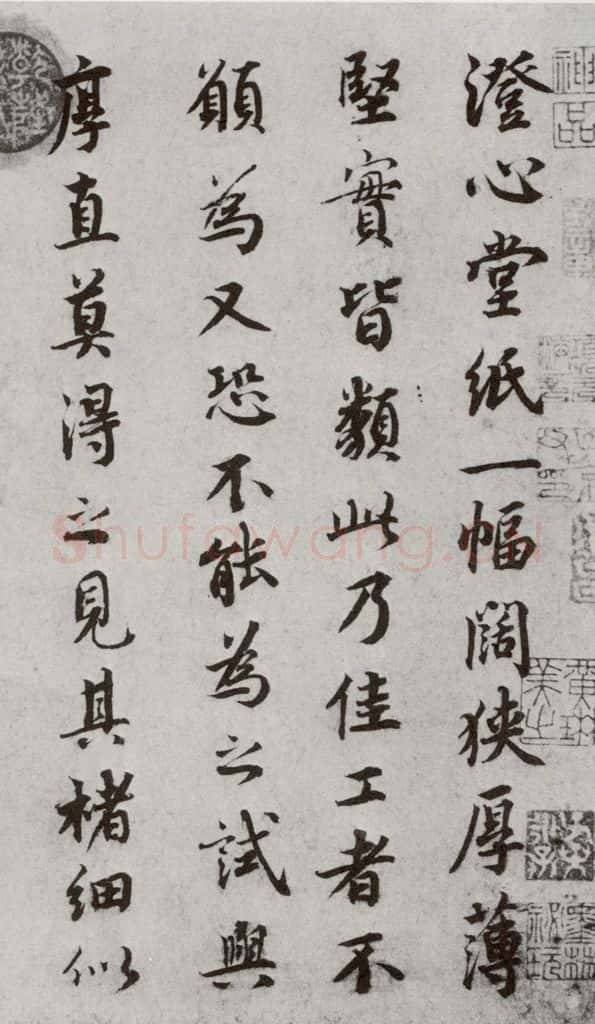 澄心堂紙一幅闊狹厚薄
堅實皆類此乃佳工者不
願為又恐不能為之試與
厚直莫得之見其楮細似
神品
shufawang.cn